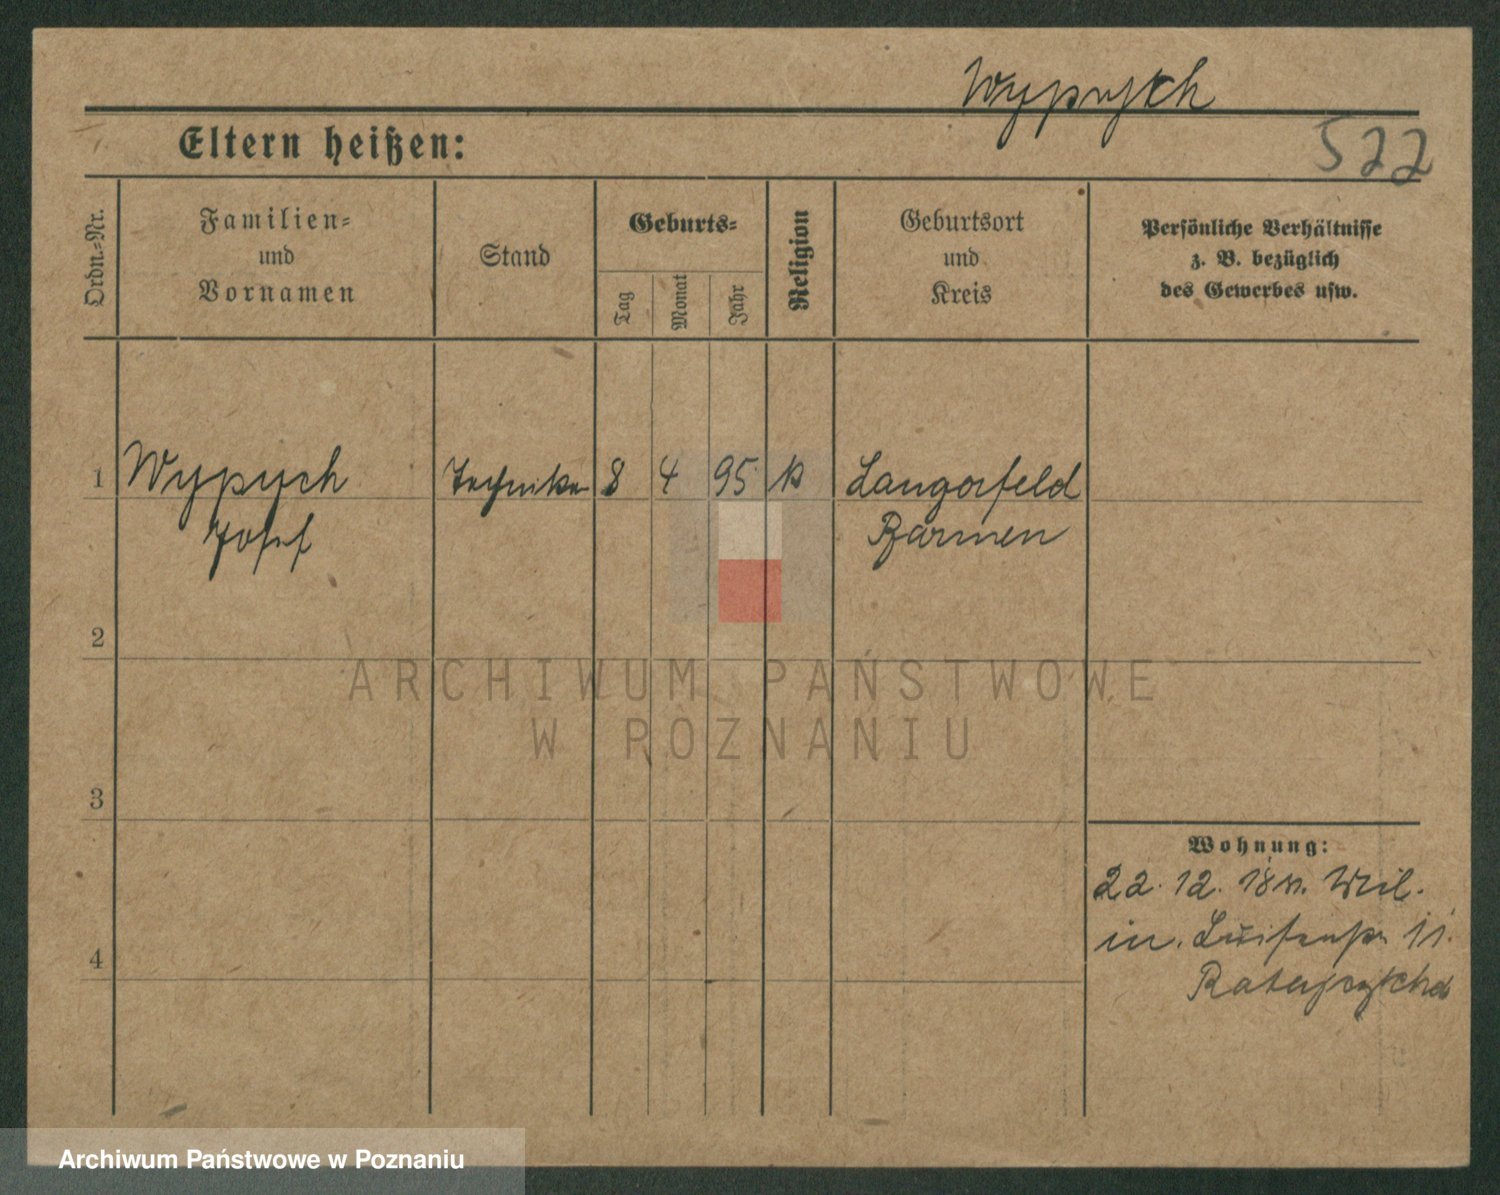 Wypysch
522
Eltern heißen:
Ordn.-Nr.
Familien-
und
Vornamen
Stand
Geburts-
Tag
Monat
Jahr
Religion
Geburtsort
und
Kreis
Persönliche Verhältnisse
z. B. bezüglich
des Gewerbes usw.
1 Wypych Techniker 8 4 95 k Langerfeld
Josef Barmen
2
3
4
Wohnung:
22. 12. 18 Wil.
in. Luisenstr 11.
ARCHIWUM PAŃSTWOWE
W POZNANIU
Archiwum Państwowe w Poznaniu